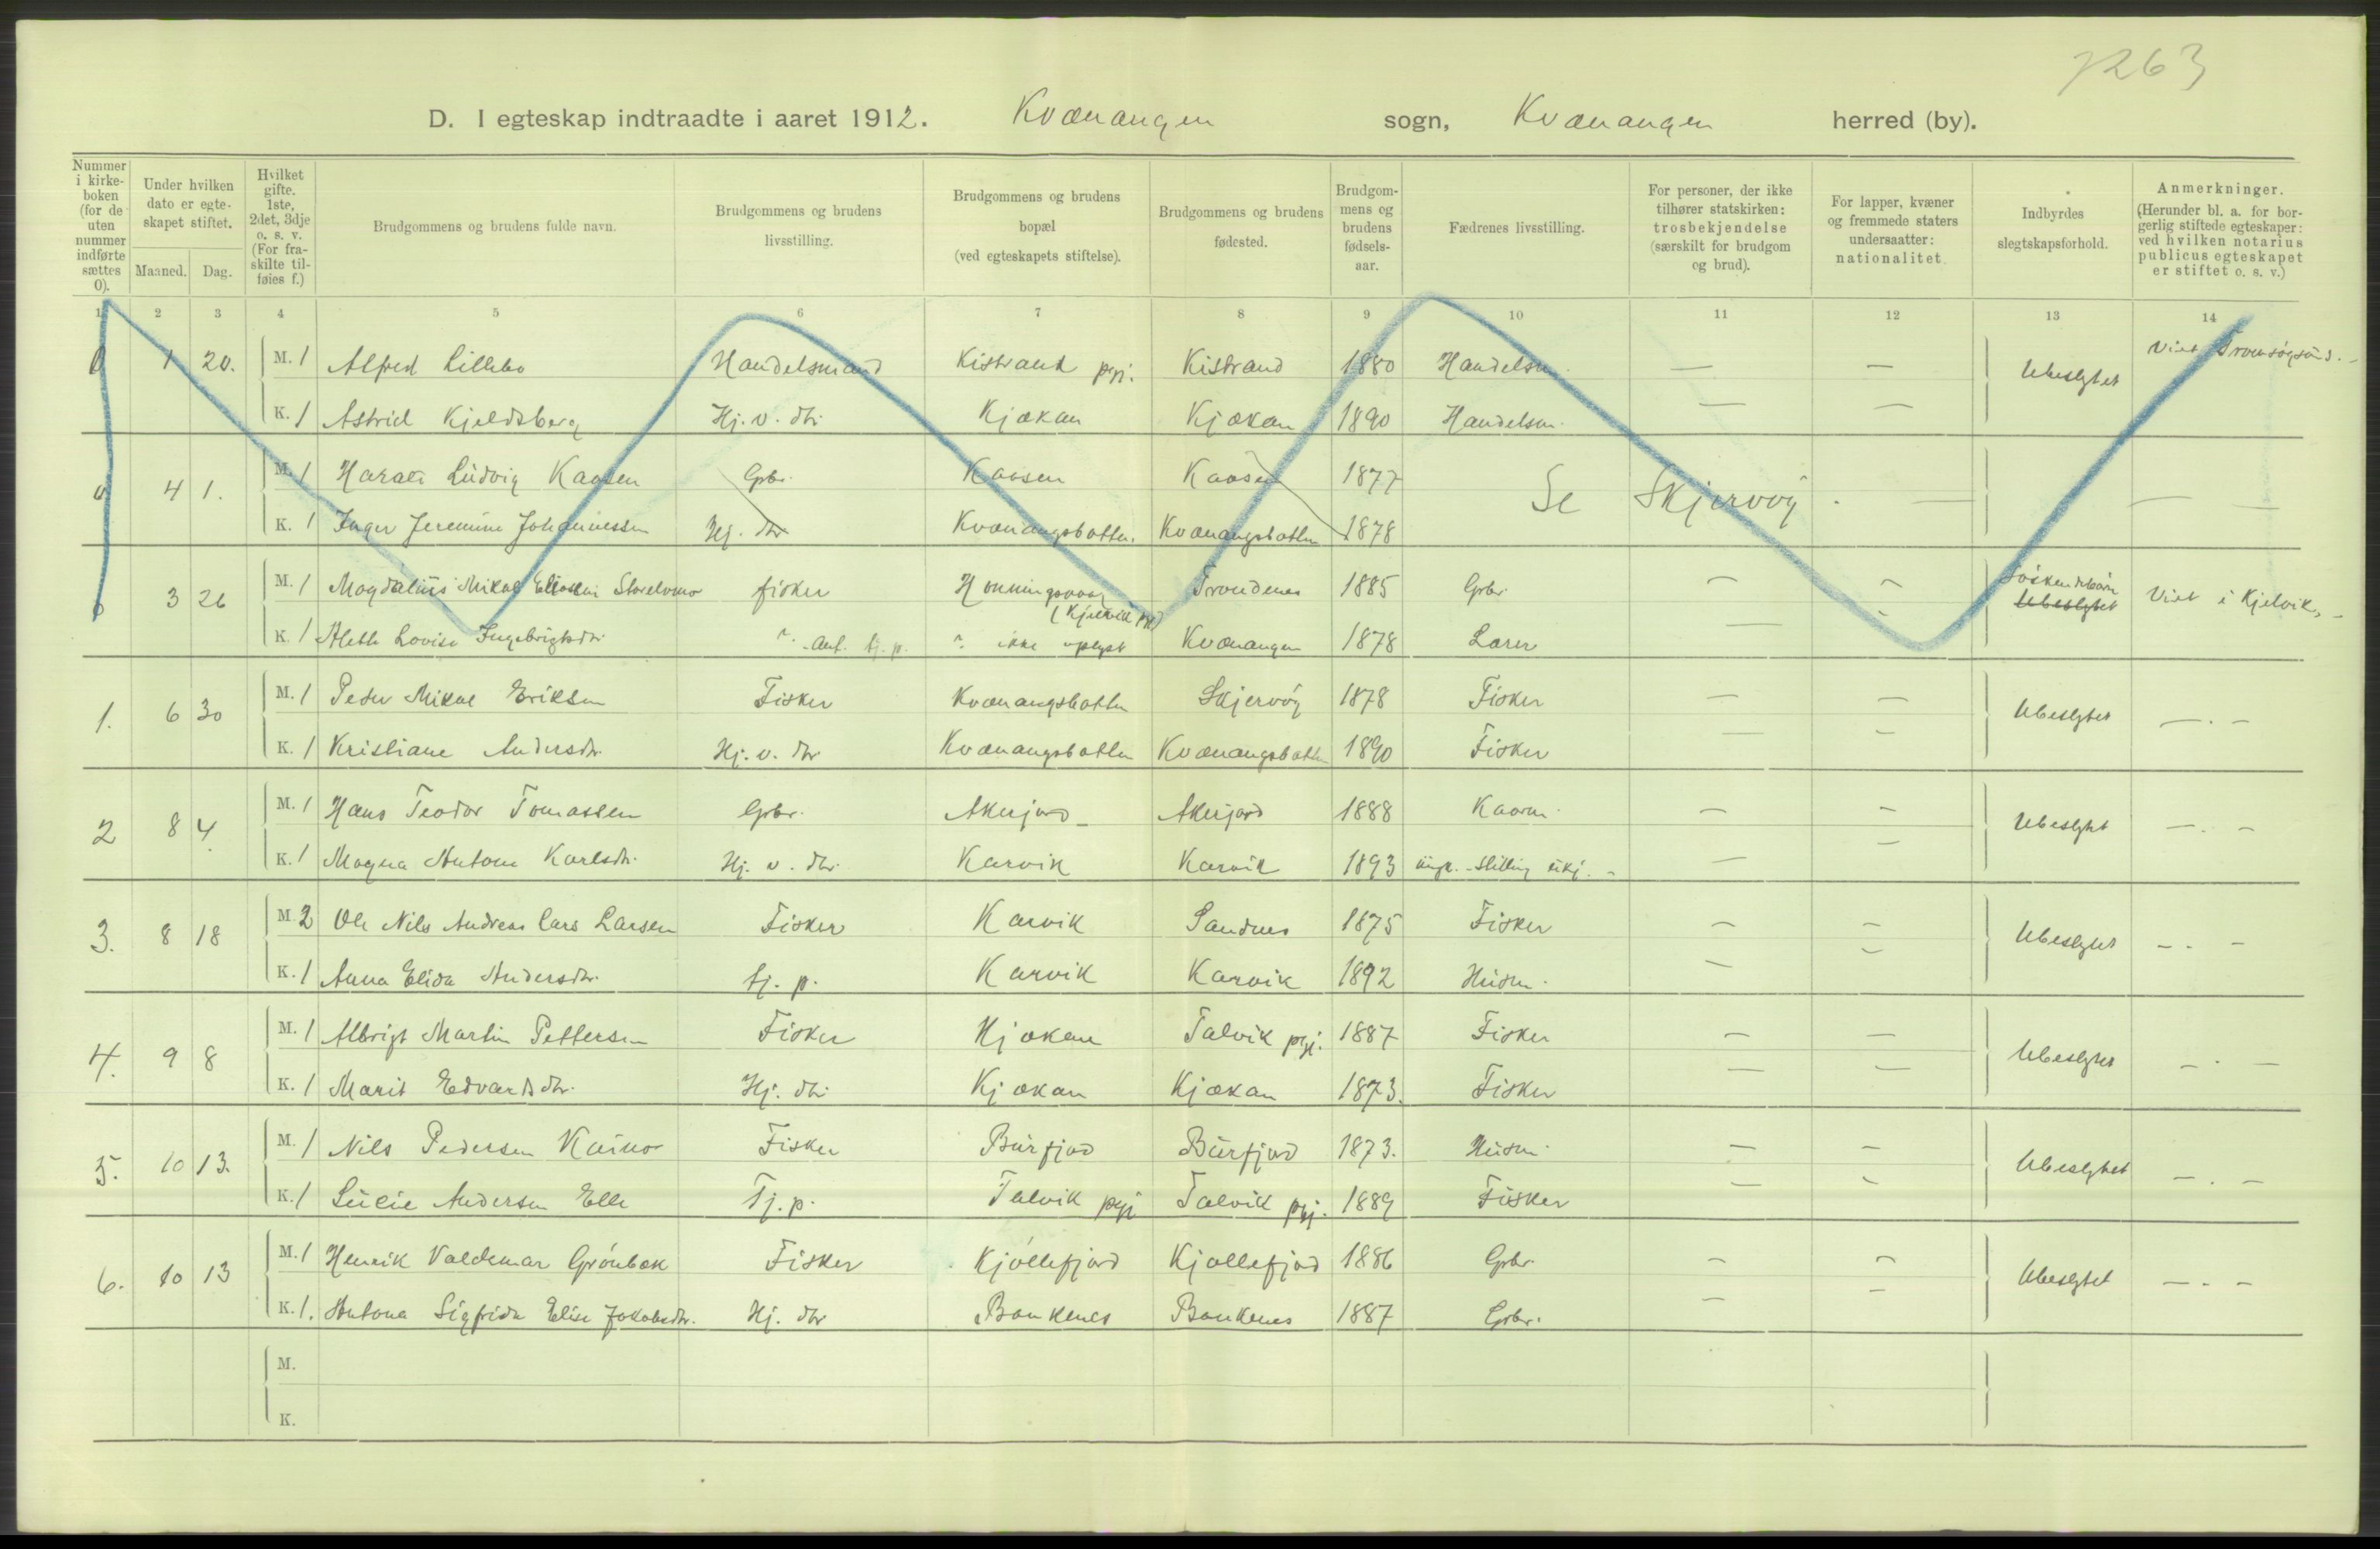 7263
D. I egteskap indtraadte i aaret 1912. Kvænangen sogn, Kvænangen herred (by).
Nummer i kirke-boken (for de uten nummer indførte sættes 0).
Under hvilken dato er egte-skapet stiftet.
Maaned. Dag.
Hvilket gifte. 1ste, 2det, 3dje o. s. v. (For fra-skilte til-føies f.)
Brudgommens og brudens fulde navn.
Brudgommens og brudens livsstilling.
Brudgommens og brudens bopæl (ved egteskapets stiftelse).
Brudgommens og brudens fødested.
Brudgom-mens og brudens fødsels-aar.
Fædrenes livsstilling.
For personer, der ikke tilhører statskirken: trosbekjendelse (særskilt for brudgom og brud).
For lapper, kvæner og fremmede staters undersaatter: nationalitet.
Indbyrdes slegtskapsforhold.
Anmerkninger. (Herunder bl. a. for bor-gerlig stiftede egteskaper: ved hvilken notarius publicus egteskapet er stiftet o. s. v.)
1 2 3 4 5 6 7 8 9 10 11 12 13 14
0 1 20. M. 1 Alfred Lillebo Handelsmand Kistrand pgj. Kistrand 1880 Handelsm. — — Ubeslgtet Viet i Tromsøysund. -
K. 1 Astrid Kjeldsberg Hj. v. dtr. Kjækan Kjækan 1890 Handelsm. — —
0 4 1. M. 1 Harald Ludvig Kaasen Gpbr. Kaasen Kaasen 1877 Se Skjervöy. — —
K. 1 Inger Jeremine Johannessen Hj. dtr Kvænangsbotten. Kvænangsbotten 1878
0 3 26 M. 1 Magdalius Mikal Storelvmo fisker Honningsvaag (Kjelvik pgj) Trondenes 1885 Gpbr. — — Söskendebörn Ubeslgtet Viet i Kjelvik. -
K. 1 Aleth Lovise Ingebrigtsdtr. ? Ant. tj. p. ? ikke oplyst Kvænangen 1878 Lærer — -
1. 6 30 M. 1 Peder Mikal Eriksen Fisker Kvænangsbotten Skjervöy 1878 Fisker — — Ubeslgtet — . —
K. 1 Kristiane Andersdtr. Hj. v. dtr Kvænangsbotten Kvænangsbotten 1890 Fisker — —
2 8 4. M. 1 Hans Teodor Tomassen Gpbr. Akerjord - Akerjord 1888 — — Ubeslgtet — . —
K. 1 Magna Antone Karlsdtr. Hj. v. dtr. Karvik Karvik 1893 ungk. - Stilling ukj. - — —
3. 8 18 M. 2 Ole Nils Andreas Lars Larsen Fisker Karvik Sandnes 1875 Fisker — — Ubeslgtet — . —
K. 1 Anna Elida Andersdtr. tj. p. Karvik Karvik 1892 Husm. — —
4. 9 8 M. 1 Albrigt Martin Pettersen Fisker Kjækan Talvik pgj. 1887 Fisker — — Ubeslgtet — . —
K. 1 Marit Edvardsdtr. Hj. dtr Kjækan Kjækan 1873. Fisker — —
5. 10 13. M. 1 Nils Pedersen Kaino Fisker Burfjord Burfjord 1873. Husm. — — Ubeslgtet — . —
K. 1 Lucie Andersen Elle Tj. p. Talvik pgj Talvik pgj. 1889 Fisker — —
6. 10 13 M. 1 Henrik Valdemar Grönbæk Fisker Kjöllefjord Kjöllefjord 1886 Gpbr. — — Ubeslgtet — . —
K. 1. Antona Sigfrida Elise Jakobsdtr. Hj. dtr Bankenes Bankenes 1887 Gpbr. — —
M.
K.